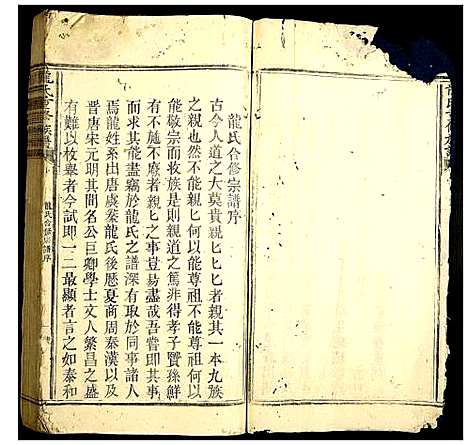 龍氏合修宗譜序
古今人道之大莫貴親匕匕匕者親其一本九族
之親也然不能親匕何以能尊祖不能尊祖何以
能敬宗而收族是則親道之篤非得孝子賢孫鮮
有不施不廢者親匕之事豈易盡哉吾嘗即其事
而求其能於龍氏之譜深有取於同事諸人
焉龍姓系出唐虞豢龍氏後歷夏商周秦漢以及
晋唐宋元明其間名公巨卿學士文人繁昌之盛
有難以枚舉者今試即一二最顯者言之如秦和
龍氏合修宗譜序